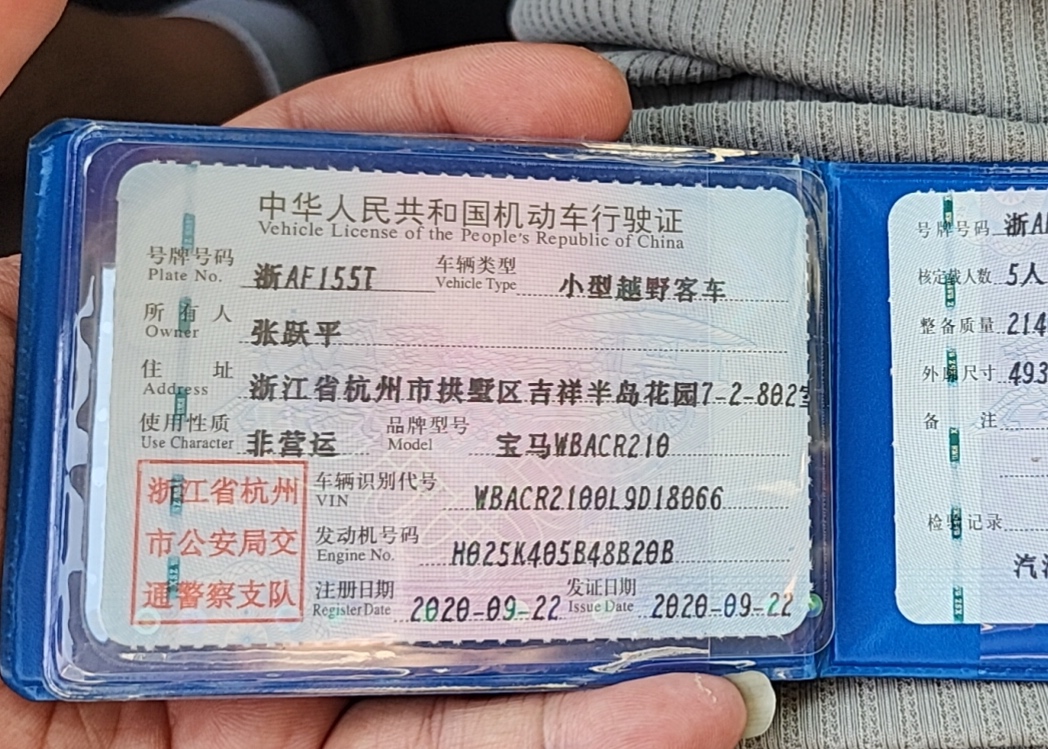 中华人民共和国机动车行驶证
Vehicle License of the People's Republic of China
号牌号码 浙AF155T 车辆类型 小型越野客车
Plate No. Vehicle Type
所有人 张跃平
Owner
住址 浙江省杭州市拱墅区吉祥半岛花园7-2-802室
Address
使用性质 非营运 品牌型号 宝马WBACR210
Use Character Model
浙江省杭州
市公安局交
通警察支队
车辆识别代号 WBACR2100L9D18066
VIN
发动机号码 H025K405B48B20B
Engine No.
注册日期 2020-09-22 发证日期 2020-09-22
Register Date Issue Date
号牌号码 浙A
核定载人数 5人
整备质量 214
外廓尺寸 493
备注
检验记录